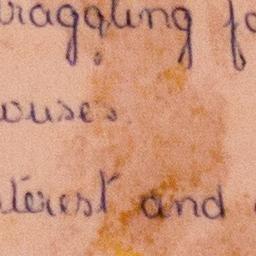 traggling fo
ouses.
terest and